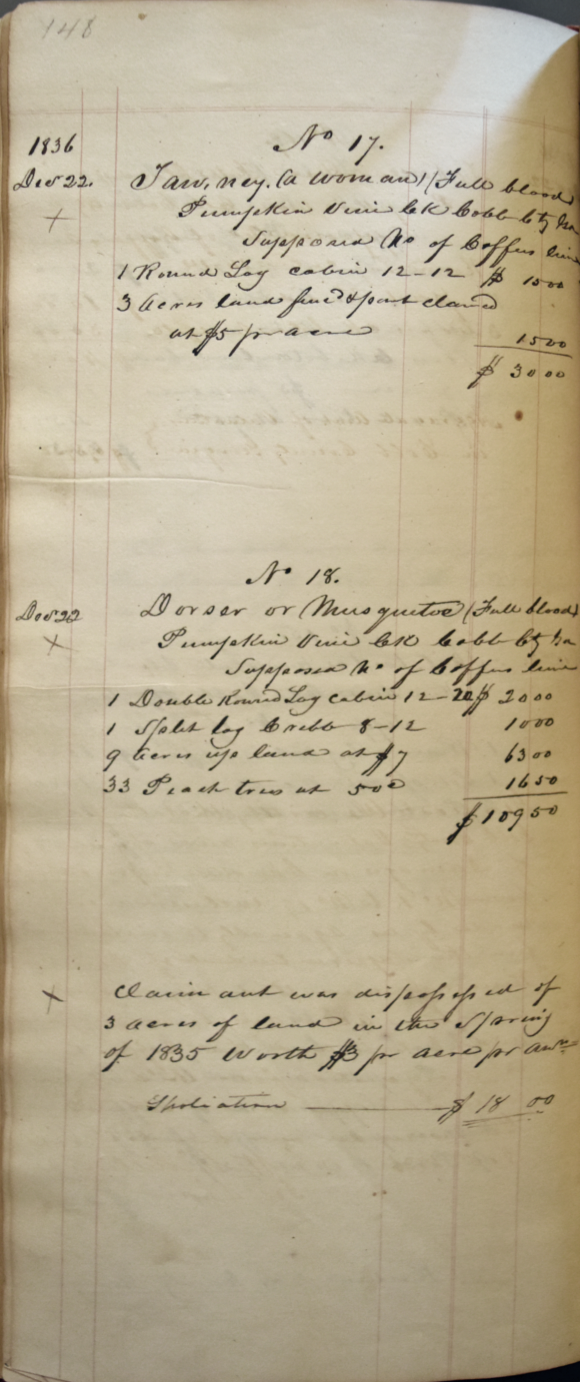 148
No 17.
1836
Dec 22. Taw, ney, (a woman) (Full blood)
Pumpkin Vine Ck Cobb Cty Ga
Supposed No of Coffus line
1 Round Log cabin 12-12 $ 1500
3 acres land fencd & part cleard
at $5 pr acre 1500
$ 3000
No 18.
Dec 22 Dorser or Musquetoe (Full blood)
Pumpkin Vine Ck Cobb Cty Ga
Supposed No of Coffus line
1 Double Round Log cabin 12-20 $ 2000
1 Split log Cribb 8-12 1000
9 acres up land at $7 6300
33 Peach trees at 50c 1650
$109 50
Claimant was dispossessed of
3 acres of land in the Spring
of 1835 worth $3 pr acre pr anm
Spoliation $ 18 00